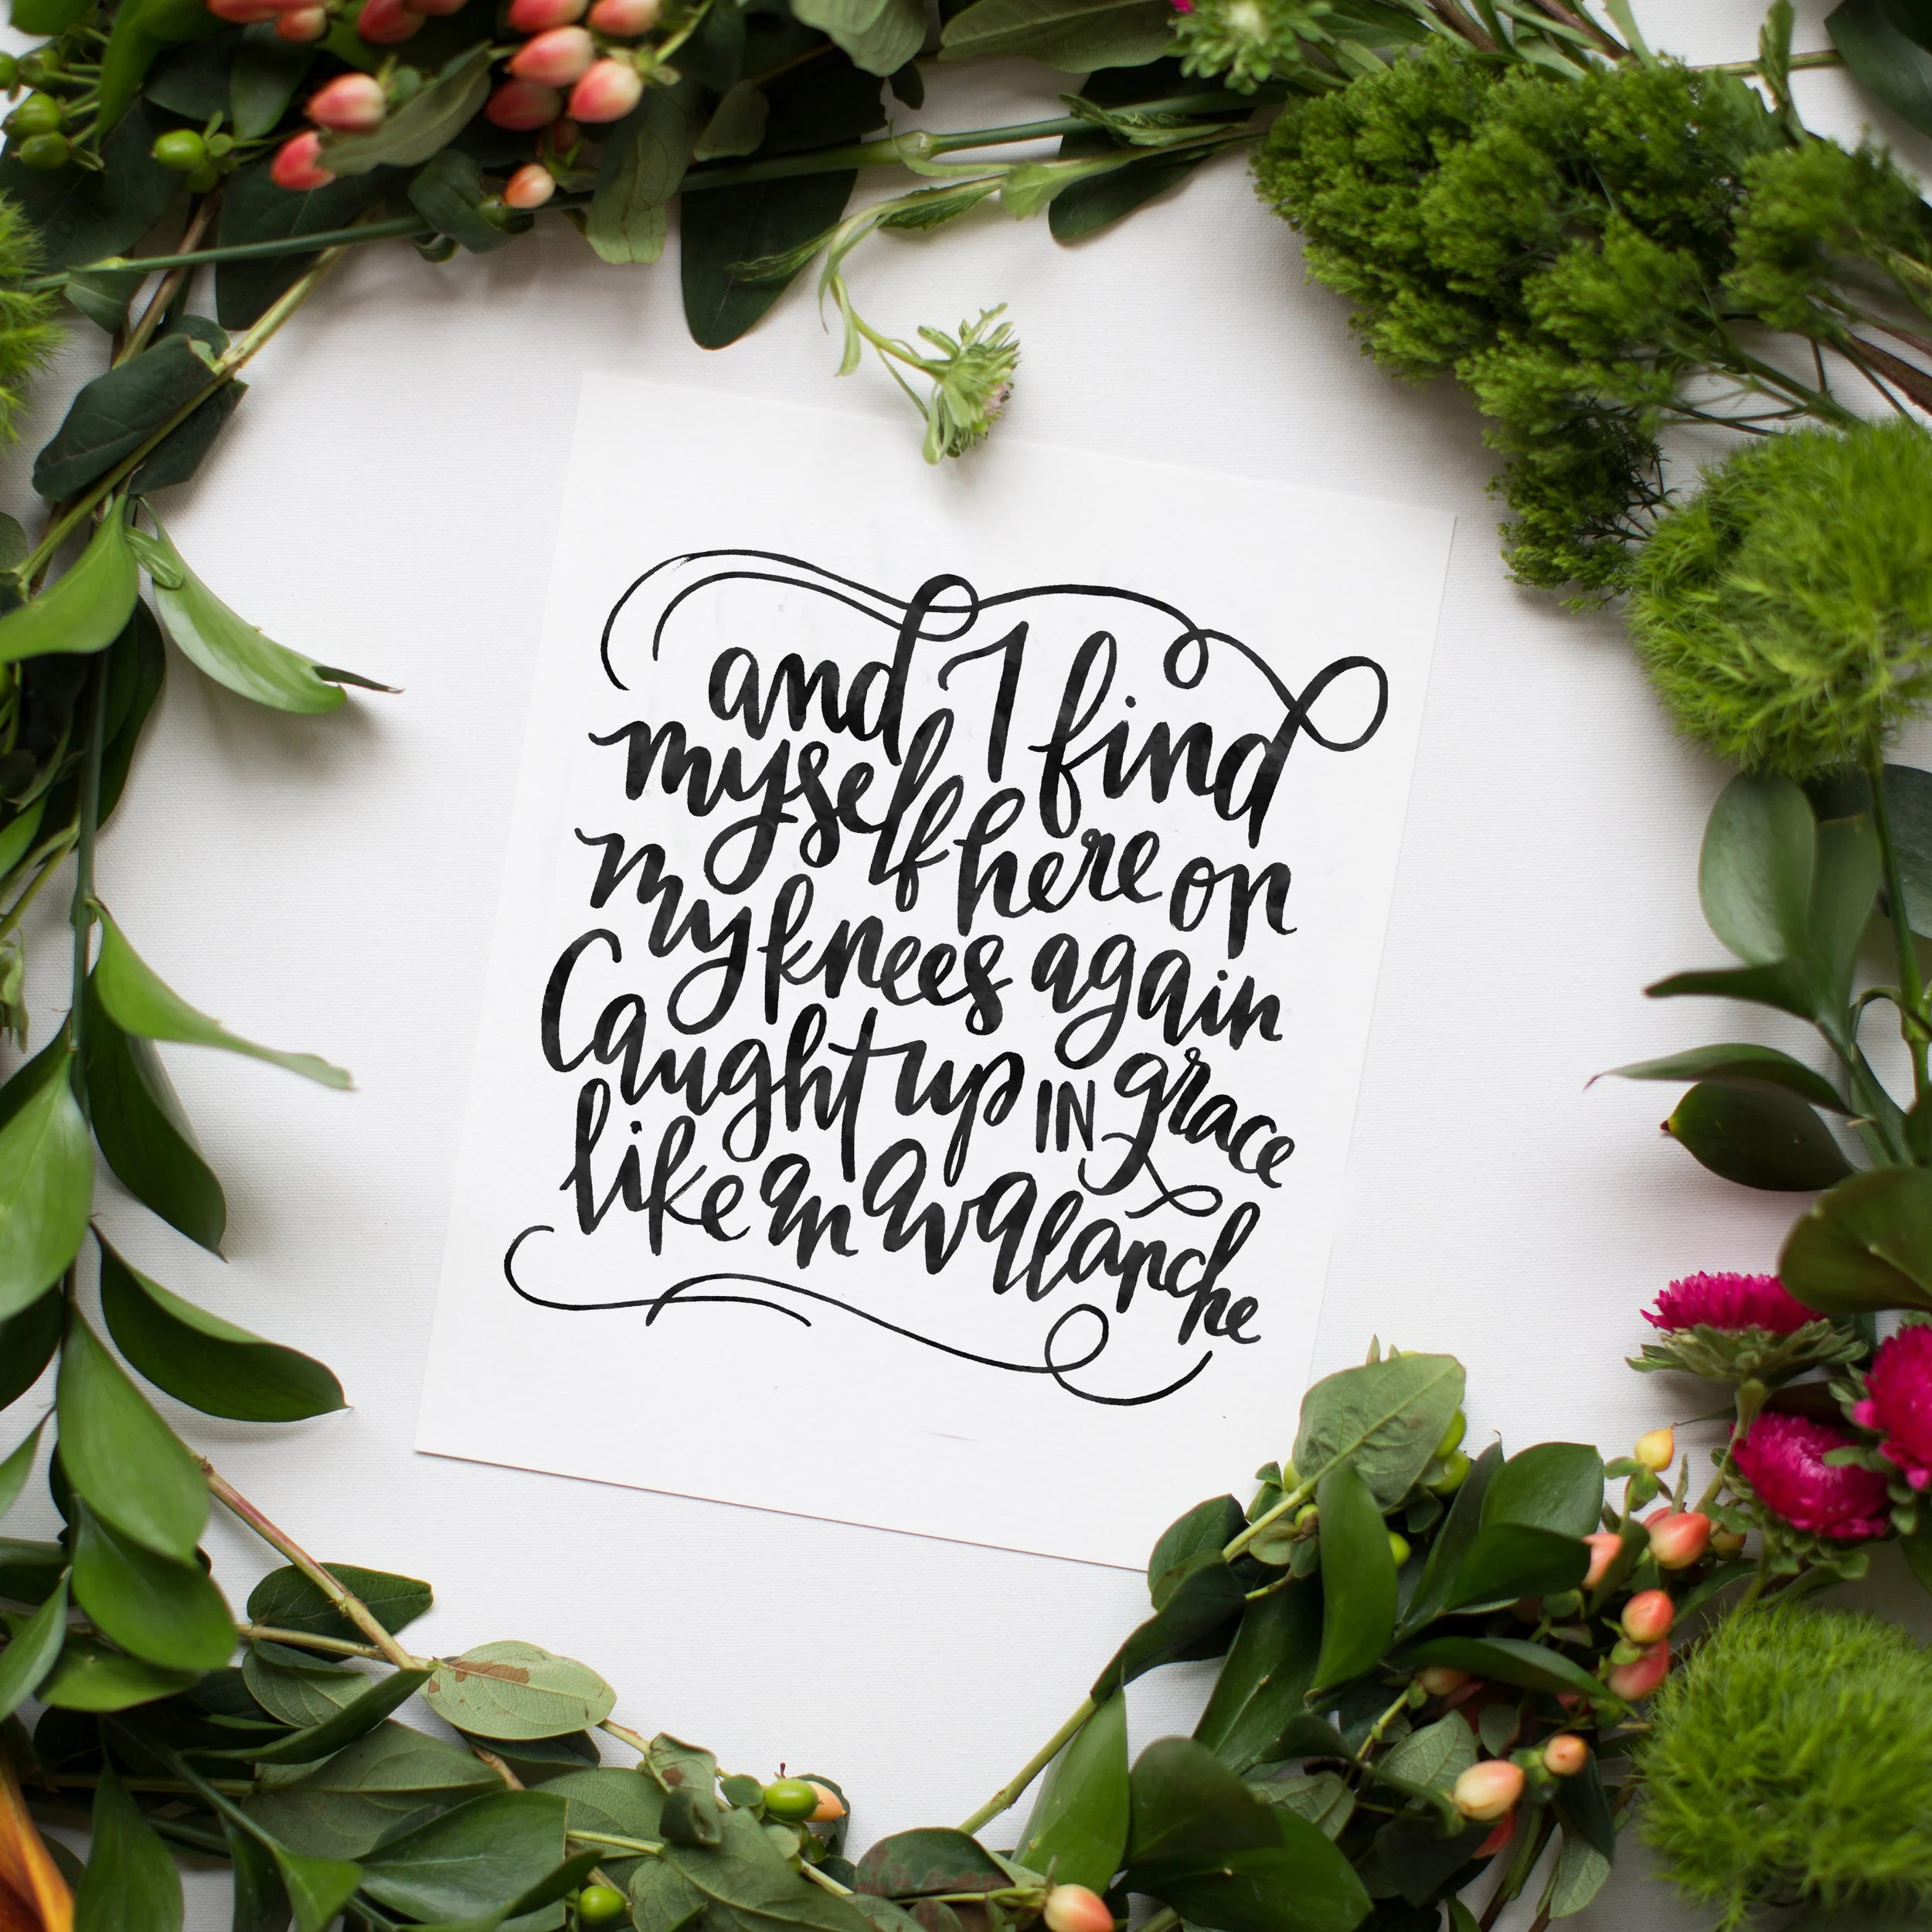 and I find
myself here on
my knees again
Caught up IN grace
like an avalanche